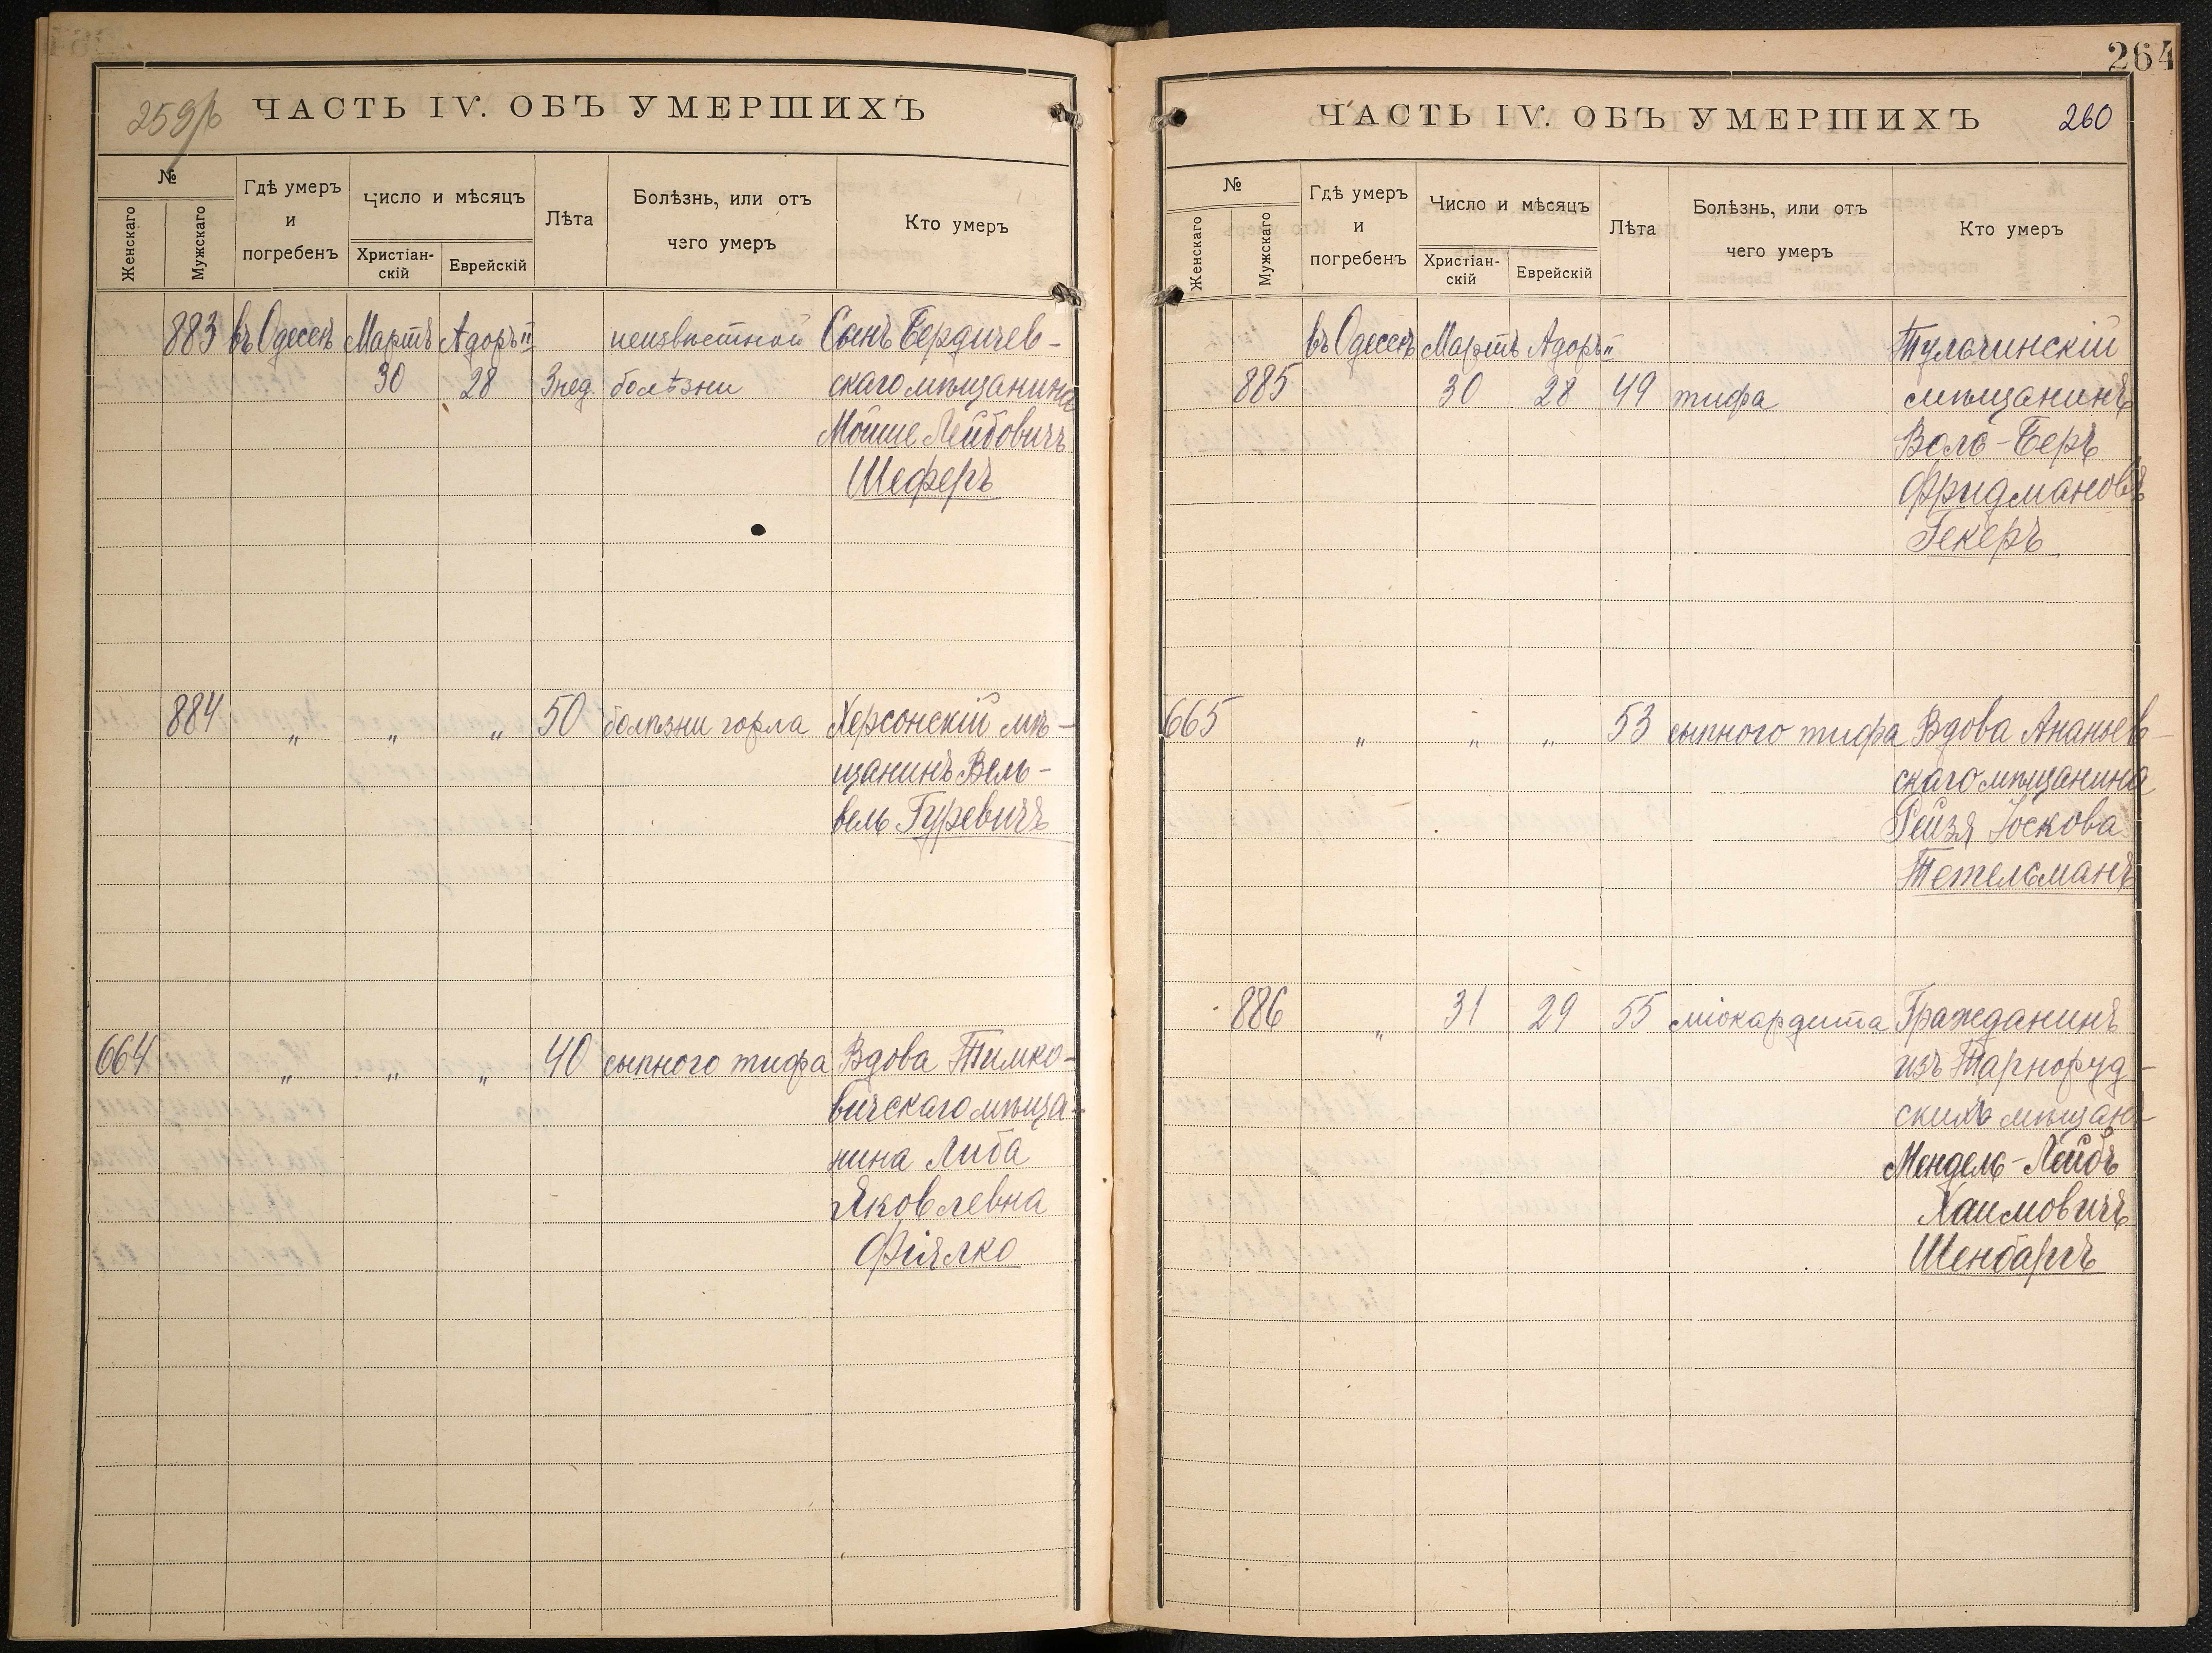 259/б ЧАСТЬ IV. ОБЪ УМЕРШИХЪ
№
Женскаго
Мужскаго
Гдѣ умеръ
и
погребенъ
Число и мѣсяцъ
Христіан-
скій
Еврейскій
Лѣта
Болѣзнь, или отъ
чего умеръ
Кто умеръ
883 въ Одессѣ Мартъ Адоръ II неизвѣстной Сынъ Бердичев-
30 28 3 нед. болѣзни скаго мѣщанина
Мойше Лейбовичъ
Шеферъ
884 " " " 50 болѣзни горла Херсонскій мѣ-
щанинъ Вель-
вель Гуревичъ
664 " " " 40 сыпного тифа Вдова Тимко-
вичскаго мѣща-
нина Либа
Яковлевна
Фіялко
264
ЧАСТЬ IV. ОБЪ УМЕРШИХЪ 260
№
Женскаго
Мужскаго
Гдѣ умеръ
и
погребенъ
Число и мѣсяцъ
Христіан-
скій
Еврейскій
Лѣта
Болѣзнь, или отъ
чего умеръ
Кто умеръ
въ Одессѣ Мартъ Адоръ II Тульчинскій
885 30 28 49 тифа мѣщанинъ
Волъ-Беръ
Фридмановъ
Гекеръ
665 " " " 53 сыпного тифа Вдова Ананьев-
скаго мѣщанина
Рейзя Іоскова
Тетельманъ
886 " 31 29 55 міокардита Гражданинъ
изъ Тарноруд-
скихъ мѣщанъ
Мендель-Лейбъ
Хаимовичъ
Шенбаргъ